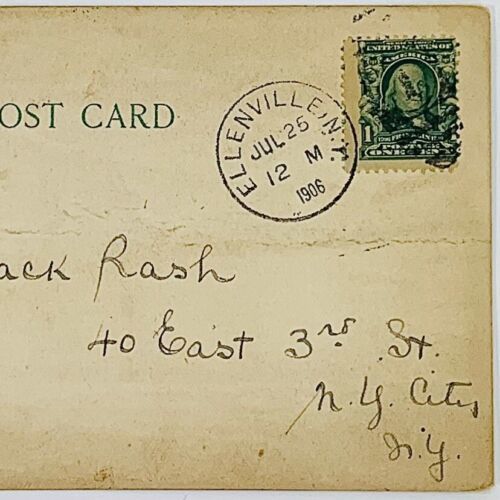 OST CARD
UNITED STATES OF
AMERICA
1 FRANKLIN 1
POSTAGE
ONE CENT
ELLENVILLE, N.Y.
JUL 25
12 M
1906
ack Rash
40 East 3rd St.
N. Y. City
N.Y.